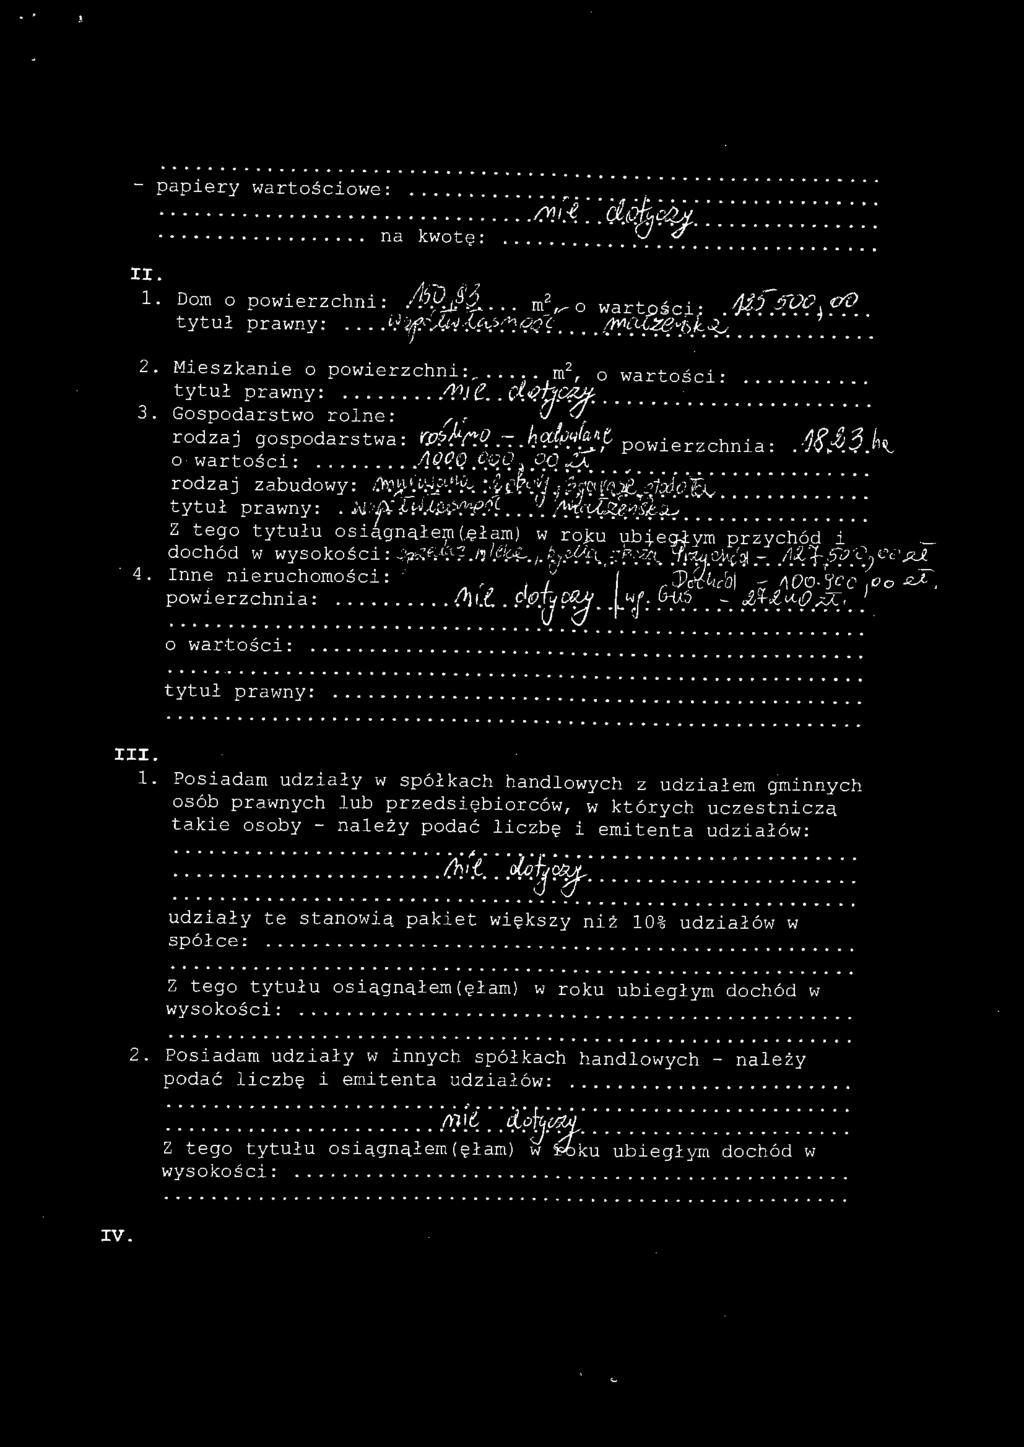 - papiery wartościowe: ..........
nie dotyczy
na kwotę: ..........
II.
1. Dom o powierzchni: 150,93 m², o wartości: 125 500,00
tytuł prawny: współwłasność małżeńska
2. Mieszkanie o powierzchni: ..... m², o wartości: ..........
tytuł prawny: nie dotyczy
3. Gospodarstwo rolne:
rodzaj gospodarstwa: roślinno - hodowlane, powierzchnia: 18,23 ha
o wartości: 1000.000,00 zł
rodzaj zabudowy: murowana: obory, garaże, stodoła
tytuł prawny: współwłasność małżeńska
Z tego tytułu osiągnąłem(ęłam) w roku ubiegłym przychód i
dochód w wysokości: sprzedaż mleka, bydła, zboża Przychód - 127.500,00 zł
4. Inne nieruchomości: Dochód - 100.900,00 zł.
powierzchnia: nie dotyczy wg. GUS -
o wartości: ..........
tytuł prawny: ..........
III.
1. Posiadam udziały w spółkach handlowych z udziałem gminnych
osób prawnych lub przedsiębiorców, w których uczestniczą
takie osoby - należy podać liczbę i emitenta udziałów:
nie dotyczy
udziały te stanowią pakiet większy niż 10% udziałów w
spółce: ..........
Z tego tytułu osiągnąłem(ęłam) w roku ubiegłym dochód w
wysokości: ..........
2. Posiadam udziały w innych spółkach handlowych - należy
podać liczbę i emitenta udziałów: ..........
nie dotyczy
Z tego tytułu osiągnąłem(ęłam) w roku ubiegłym dochód w
wysokości: ..........
IV.